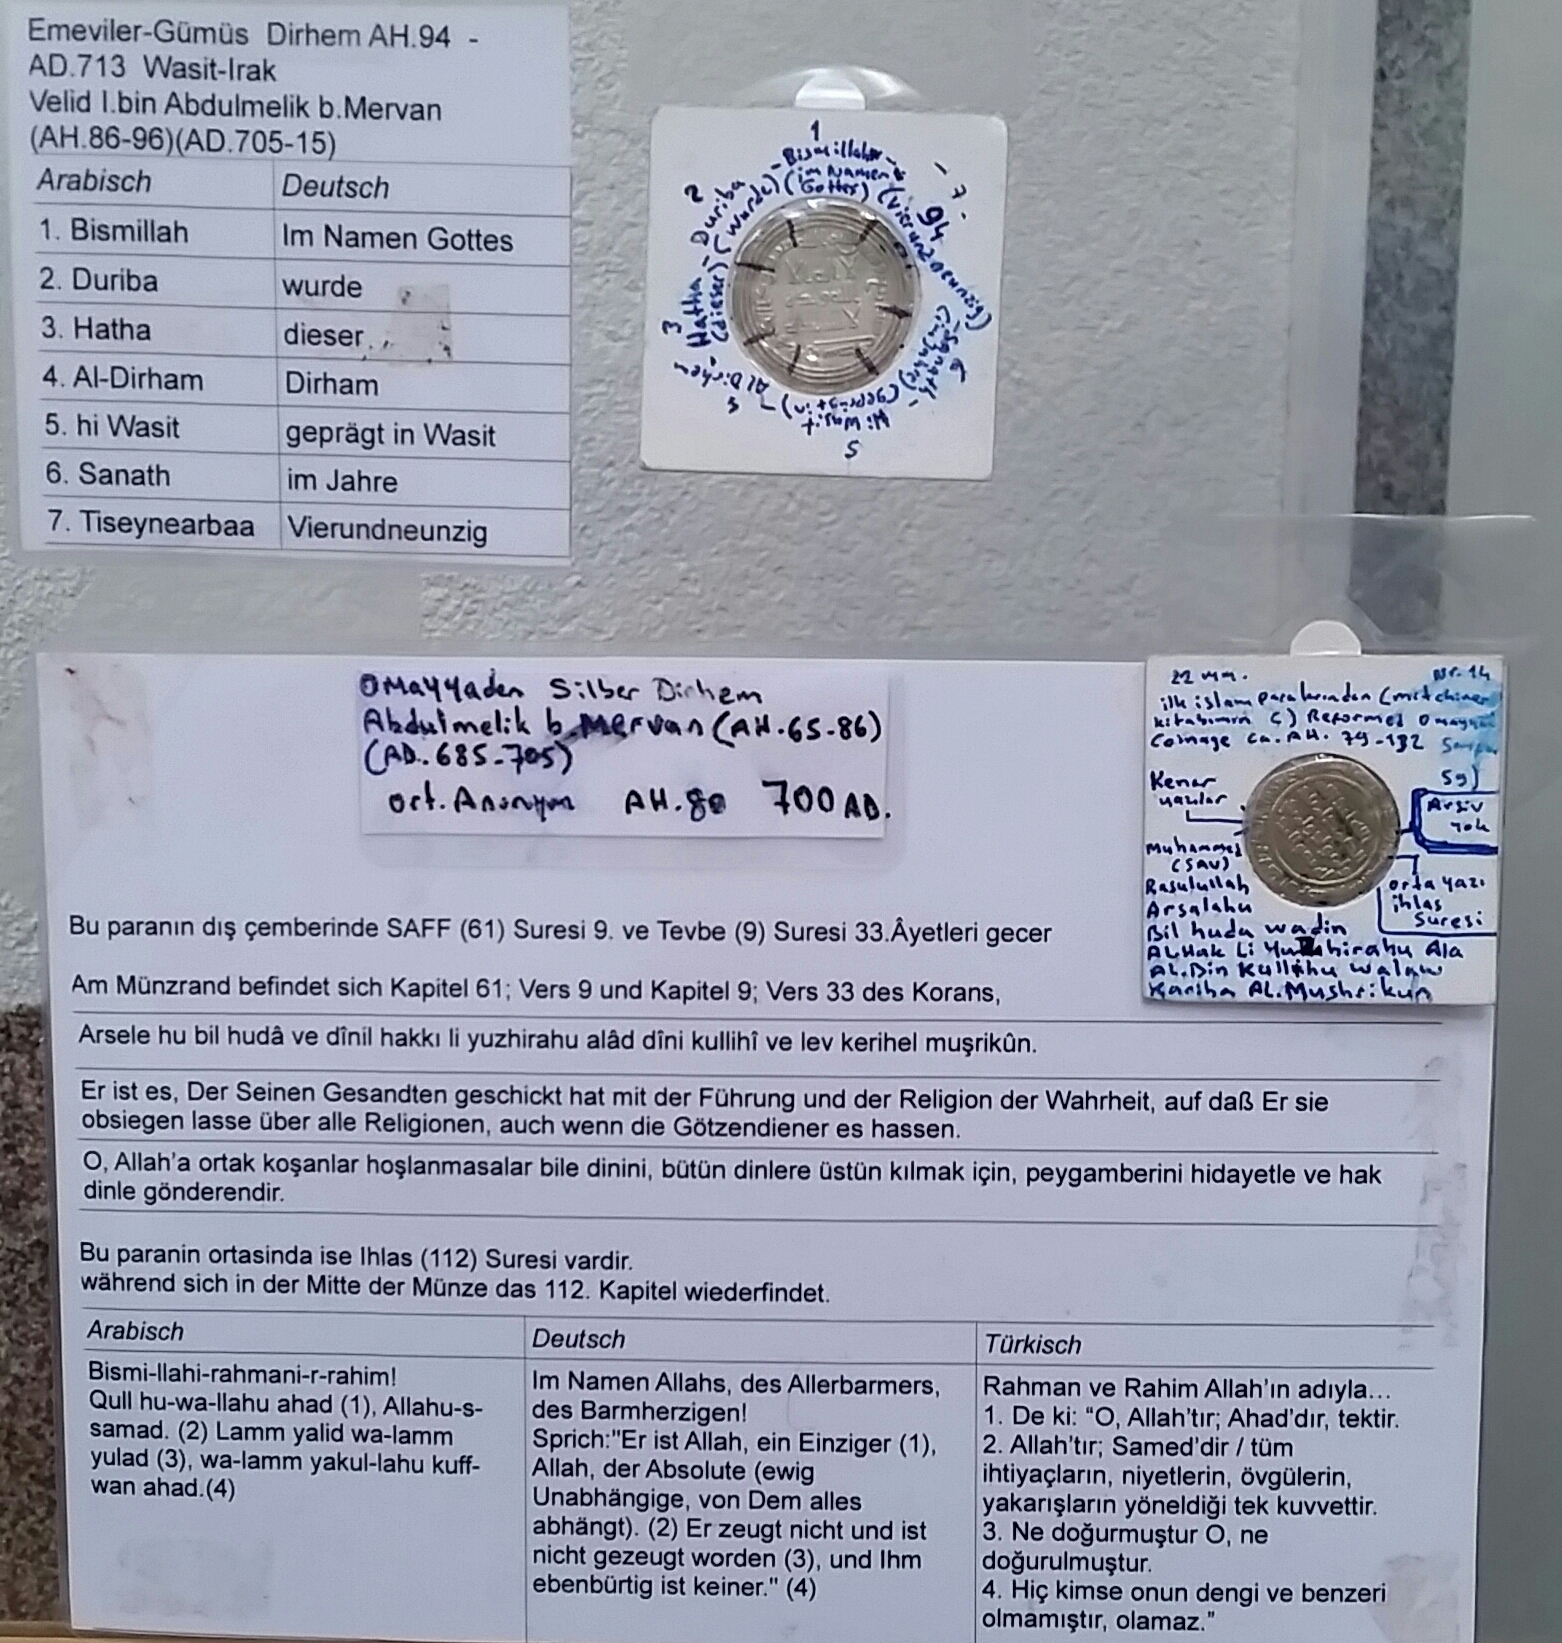 Emeviler-Gümüs Dirhem AH.94 -
AD.713 Wasit-Irak
Velid I.bin Abdulmelik b.Mervan
(AH.86-96)(AD.705-15)
Arabisch Deutsch
1. Bismillah Im Namen Gottes
2. Duriba wurde
3. Hatha dieser
4. Al-Dirham Dirham
5. hi Wasit geprägt in Wasit
6. Sanath im Jahre
7. Tiseynearbaa Vierundneunzig
1
Bismillah
(im Namen Gottes)
2
Duriba
(wurde)
3
Hatha
(dieser)
Al Dirhem
5
Hi Wasit
(geprägt in)
6
Sanath
(im Jahre)
- 7 -
94
(vierundneunzig)
Omayyaden Silber Dirhem
Abdulmelik b.Mervan (AH.65-86)
(AD.685-705)
ort. Anonym AH.80 700 AD.
22 mm. Nr.14
ilk islam paralarından (mitchiner
kitabımın C) Reformed Omayyad
Coinage ca. AH. 79-132
59)
Kenar
yazılar
Arşiv
yok
Muhammed
(SAV)
Rasulullah
Arsalahu
orta yazı
ihlas
Suresi
Bil huda wadin
AL Hak Li Yuzhirahu Ala
AL.Din Kullihu walaw
Kariha AL.Mushrikun
Bu paranın dış çemberinde SAFF (61) Suresi 9. ve Tevbe (9) Suresi 33.Âyetleri gecer
Am Münzrand befindet sich Kapitel 61; Vers 9 und Kapitel 9; Vers 33 des Korans,
Arsele hu bil hudâ ve dînil hakkı li yuzhirahu alâd dîni kullihî ve lev kerihel muşrikûn.
Er ist es, Der Seinen Gesandten geschickt hat mit der Führung und der Religion der Wahrheit, auf daß Er sie
obsiegen lasse über alle Religionen, auch wenn die Götzendiener es hassen.
O, Allah'a ortak koşanlar hoşlanmasalar bile dinini, bütün dinlere üstün kılmak için, peygamberini hidayetle ve hak
dinle gönderendir.
Bu paranin ortasinda ise Ihlas (112) Suresi vardir.
während sich in der Mitte der Münze das 112. Kapitel wiederfindet.
Arabisch
Bismi-llahi-rahmani-r-rahim!
Qull hu-wa-llahu ahad (1), Allahu-s-
samad. (2) Lamm yalid wa-lamm
yulad (3), wa-lamm yakul-lahu kuff-
wan ahad.(4)
Deutsch
Im Namen Allahs, des Allerbarmers,
des Barmherzigen!
Sprich:"Er ist Allah, ein Einziger (1),
Allah, der Absolute (ewig
Unabhängige, von Dem alles
abhängt). (2) Er zeugt nicht und ist
nicht gezeugt worden (3), und Ihm
ebenbürtig ist keiner." (4)
Türkisch
Rahman ve Rahim Allah'ın adıyla...
1. De ki: "O, Allah'tır; Ahad'dır, tektir.
2. Allah'tır; Samed'dir / tüm
ihtiyaçların, niyetlerin, övgülerin,
yakarışların yöneldiği tek kuvvettir.
3. Ne doğurmuştur O, ne
doğurulmuştur.
4. Hiç kimse onun dengi ve benzeri
olmamıştır, olamaz."